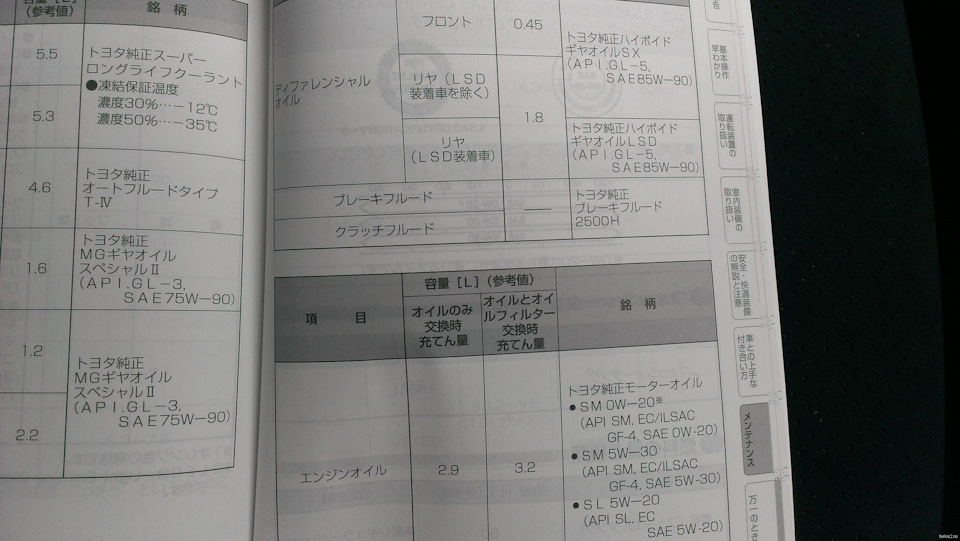 容量［L］
（参考値）
銘　柄
5.5
トヨタ純正スーパー
ロングライフクーラント
●凍結保証温度
濃度30％…−12℃
濃度50％…−35℃
5.3
4.6
トヨタ純正
オートフルードタイプ
T-Ⅳ
1.6
トヨタ純正
MGギヤオイル
スペシャルⅡ
（ＡＰＩ.GL−3,
ＳＡＥ75W−90）
1.2
トヨタ純正
MGギヤオイル
スペシャルⅡ
（ＡＰＩ.GL−3,
ＳＡＥ75W−90）
2.2
ディファレンシャル
オイル
フロント
0.45
トヨタ純正ハイポイド
ギヤオイルＳＸ
（ＡＰＩ.GL−5,
ＳＡＥ85W−90）
リヤ（ＬＳＤ
装着車を除く）
1.8
リヤ
（ＬＳＤ装着車）
トヨタ純正ハイポイド
ギヤオイルＬＳＤ
（ＡＰＩ.GL−5,
ＳＡＥ85W−90）
ブレーキフルード
クラッチフルード
―
トヨタ純正
ブレーキフルード
2500H
項　目
容量［L］（参考値）
オイルのみ
交換時
充てん量
オイルとオイ
ルフィルター
交換時
充てん量
銘　柄
エンジンオイル
2.9
3.2
トヨタ純正モーターオイル
● ＳＭ 0W−20※
（API SM, EC/ILSAC
GF-4, SAE 0W-20）
● ＳＭ 5W−30
（API SM, EC/ILSAC
GF-4, SAE 5W-30）
● ＳＬ 5W−20
（API SL, EC
SAE 5W-20）
告
基本操作
早わかり
運転装置の
取り扱い
室内装備の
取り扱い
安全・快適装備
の解説と注意
車との上手な
付き合い方
メンテナンス
万一のとき